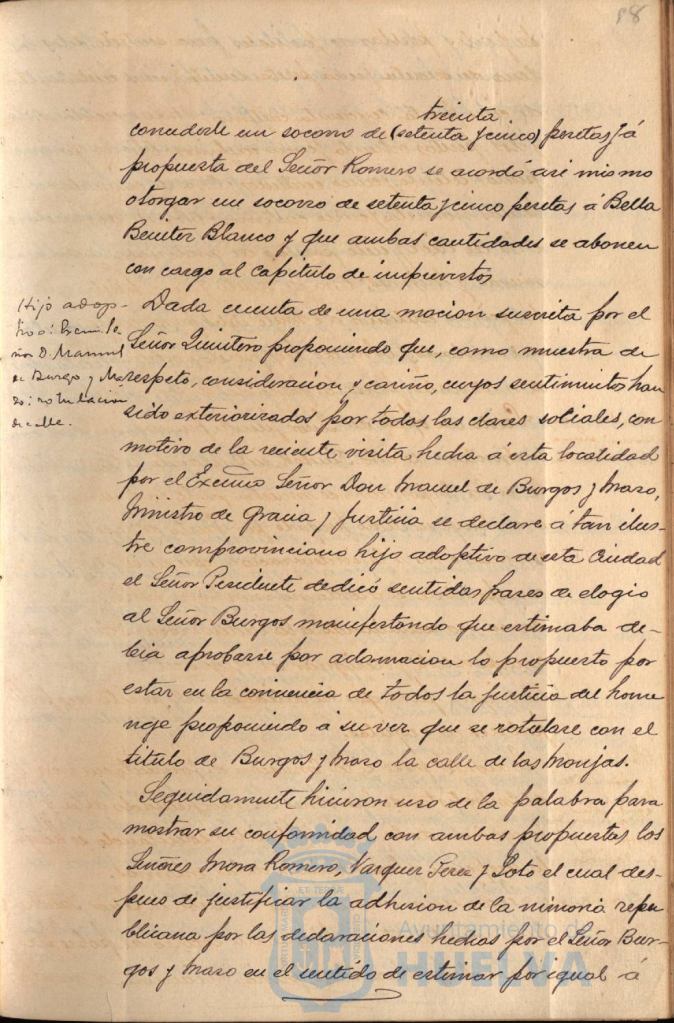 98
treinta
concederle un socorro de (setenta y cinco) pesetas y á
propuesta del Señor Romero se acordó asi mismo
otorgar un socorro de setenta y cinco pesetas á Bella
Benitez Blanco y que ambas cantidades se abonen
con cargo al capitulo de imprevistos
Hijo adop-
tivo: Excmo. Se
ñor D. Manuel
de Burgo y Ma
zo: rotulacion
de calle.
Dada cuenta de una mocion suscrita por el
Señor Quintero proponiendo que, como muestra de
respeto, consideracion y cariño, cuyos sentimientos han
sido exteriorizados por todas las clases sociales, con
motivo de la reciente visita hecha á esta localidad
por el Excmo Señor Don Manuel de Burgos y Mazo,
Ministro de Gracia y Justicia se declare á tan ilus-
tre comprovinciano hijo adoptivo de esta Ciudad
el Señor Presidente dedicó sentidas frases de elogio
al Señor Burgos manifestando que estimaba de-
bia aprobarse por aclamacion lo propuesto por
estar en la conciencia de todos la justicia del home
nage proponiendo á su vez que se rotulase con el
titulo de Burgos y Mazo la calle de las Monjas.
Seguidamente hicieron uso de la palabra para
mostrar su conformidad con ambas propuestas los
Señores Mora Romero, Vazquez Perez y Soto el cual des-
pues de justificar la adhesion de la minoria repu
blicana por las declaraciones hechas por el Señor Bur-
gos y Mazo en el sentido de estimar por igual á
Ayuntamiento de
HUELVA